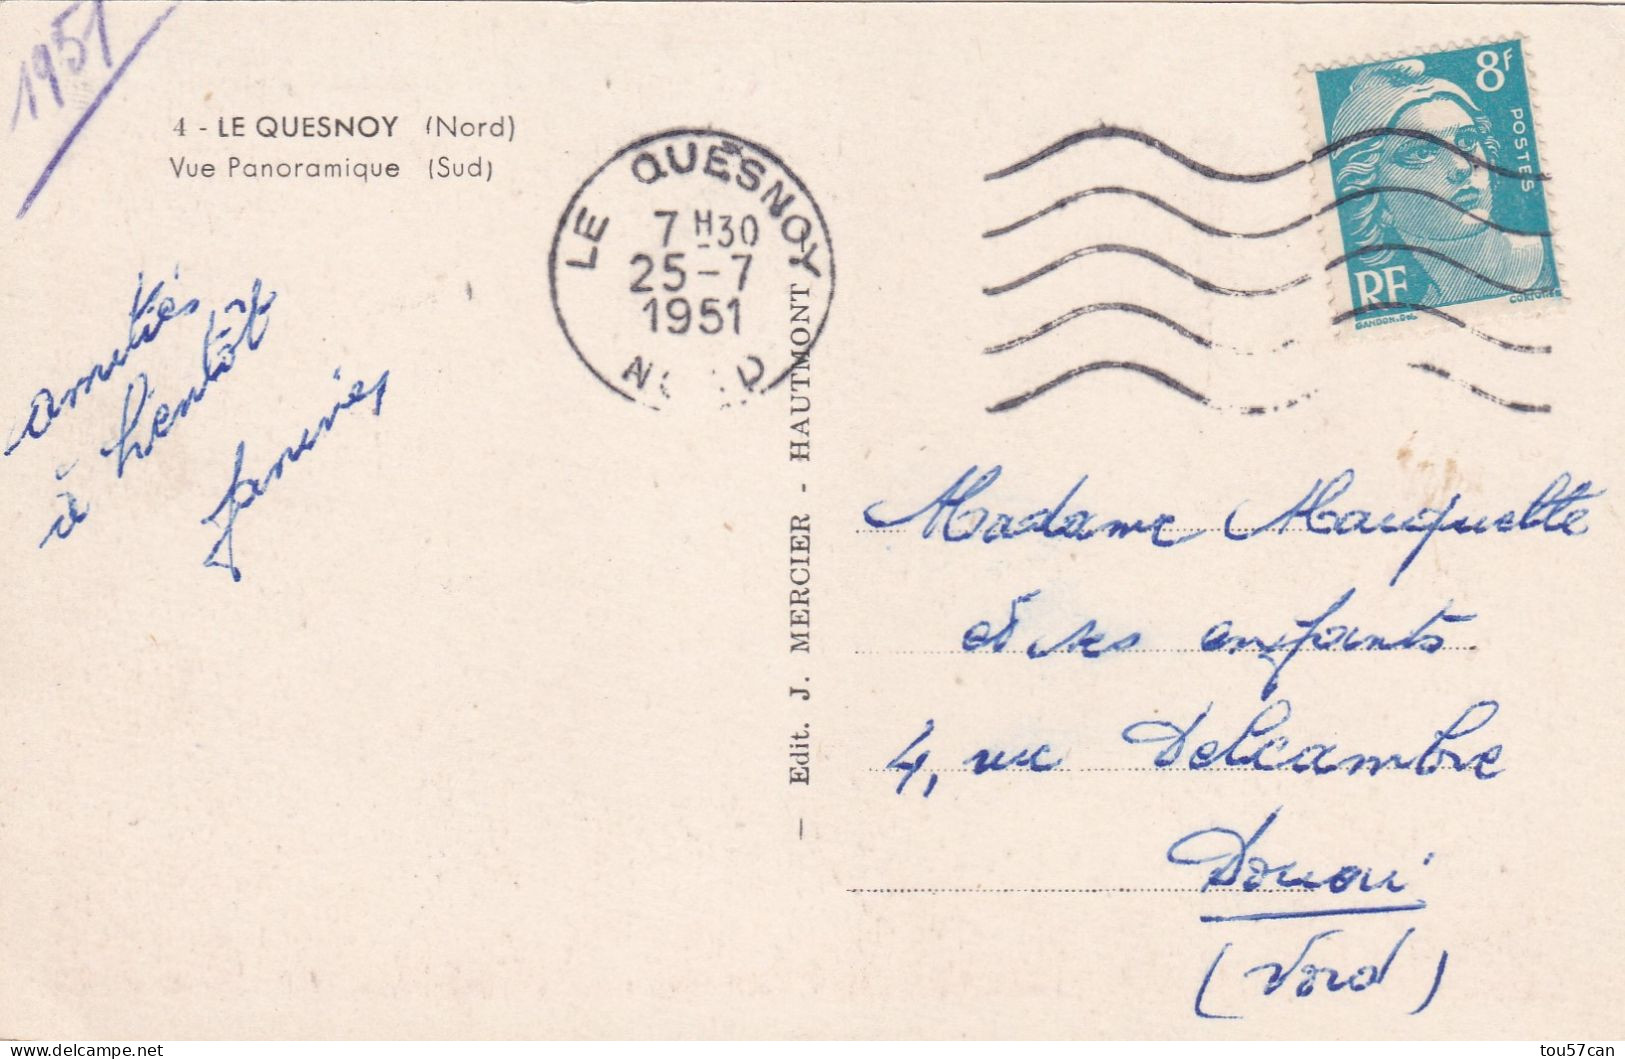 1951
4 - LE QUESNOY (Nord)
Vue Panoramique (Sud)
LE QUESNOY
7 H30
25-7
1951
8F
POSTES
RF
GANDON.Del.
amitiés
à bientôt
Edit. J. MERCIER - HAUTMONT
Madame Mauquette
et ses enfants
4, rue Delcambre
Douai
(Nord)
tou57can